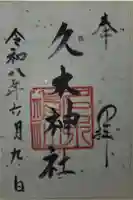 奉拝
久木神社
令和八年六月九日